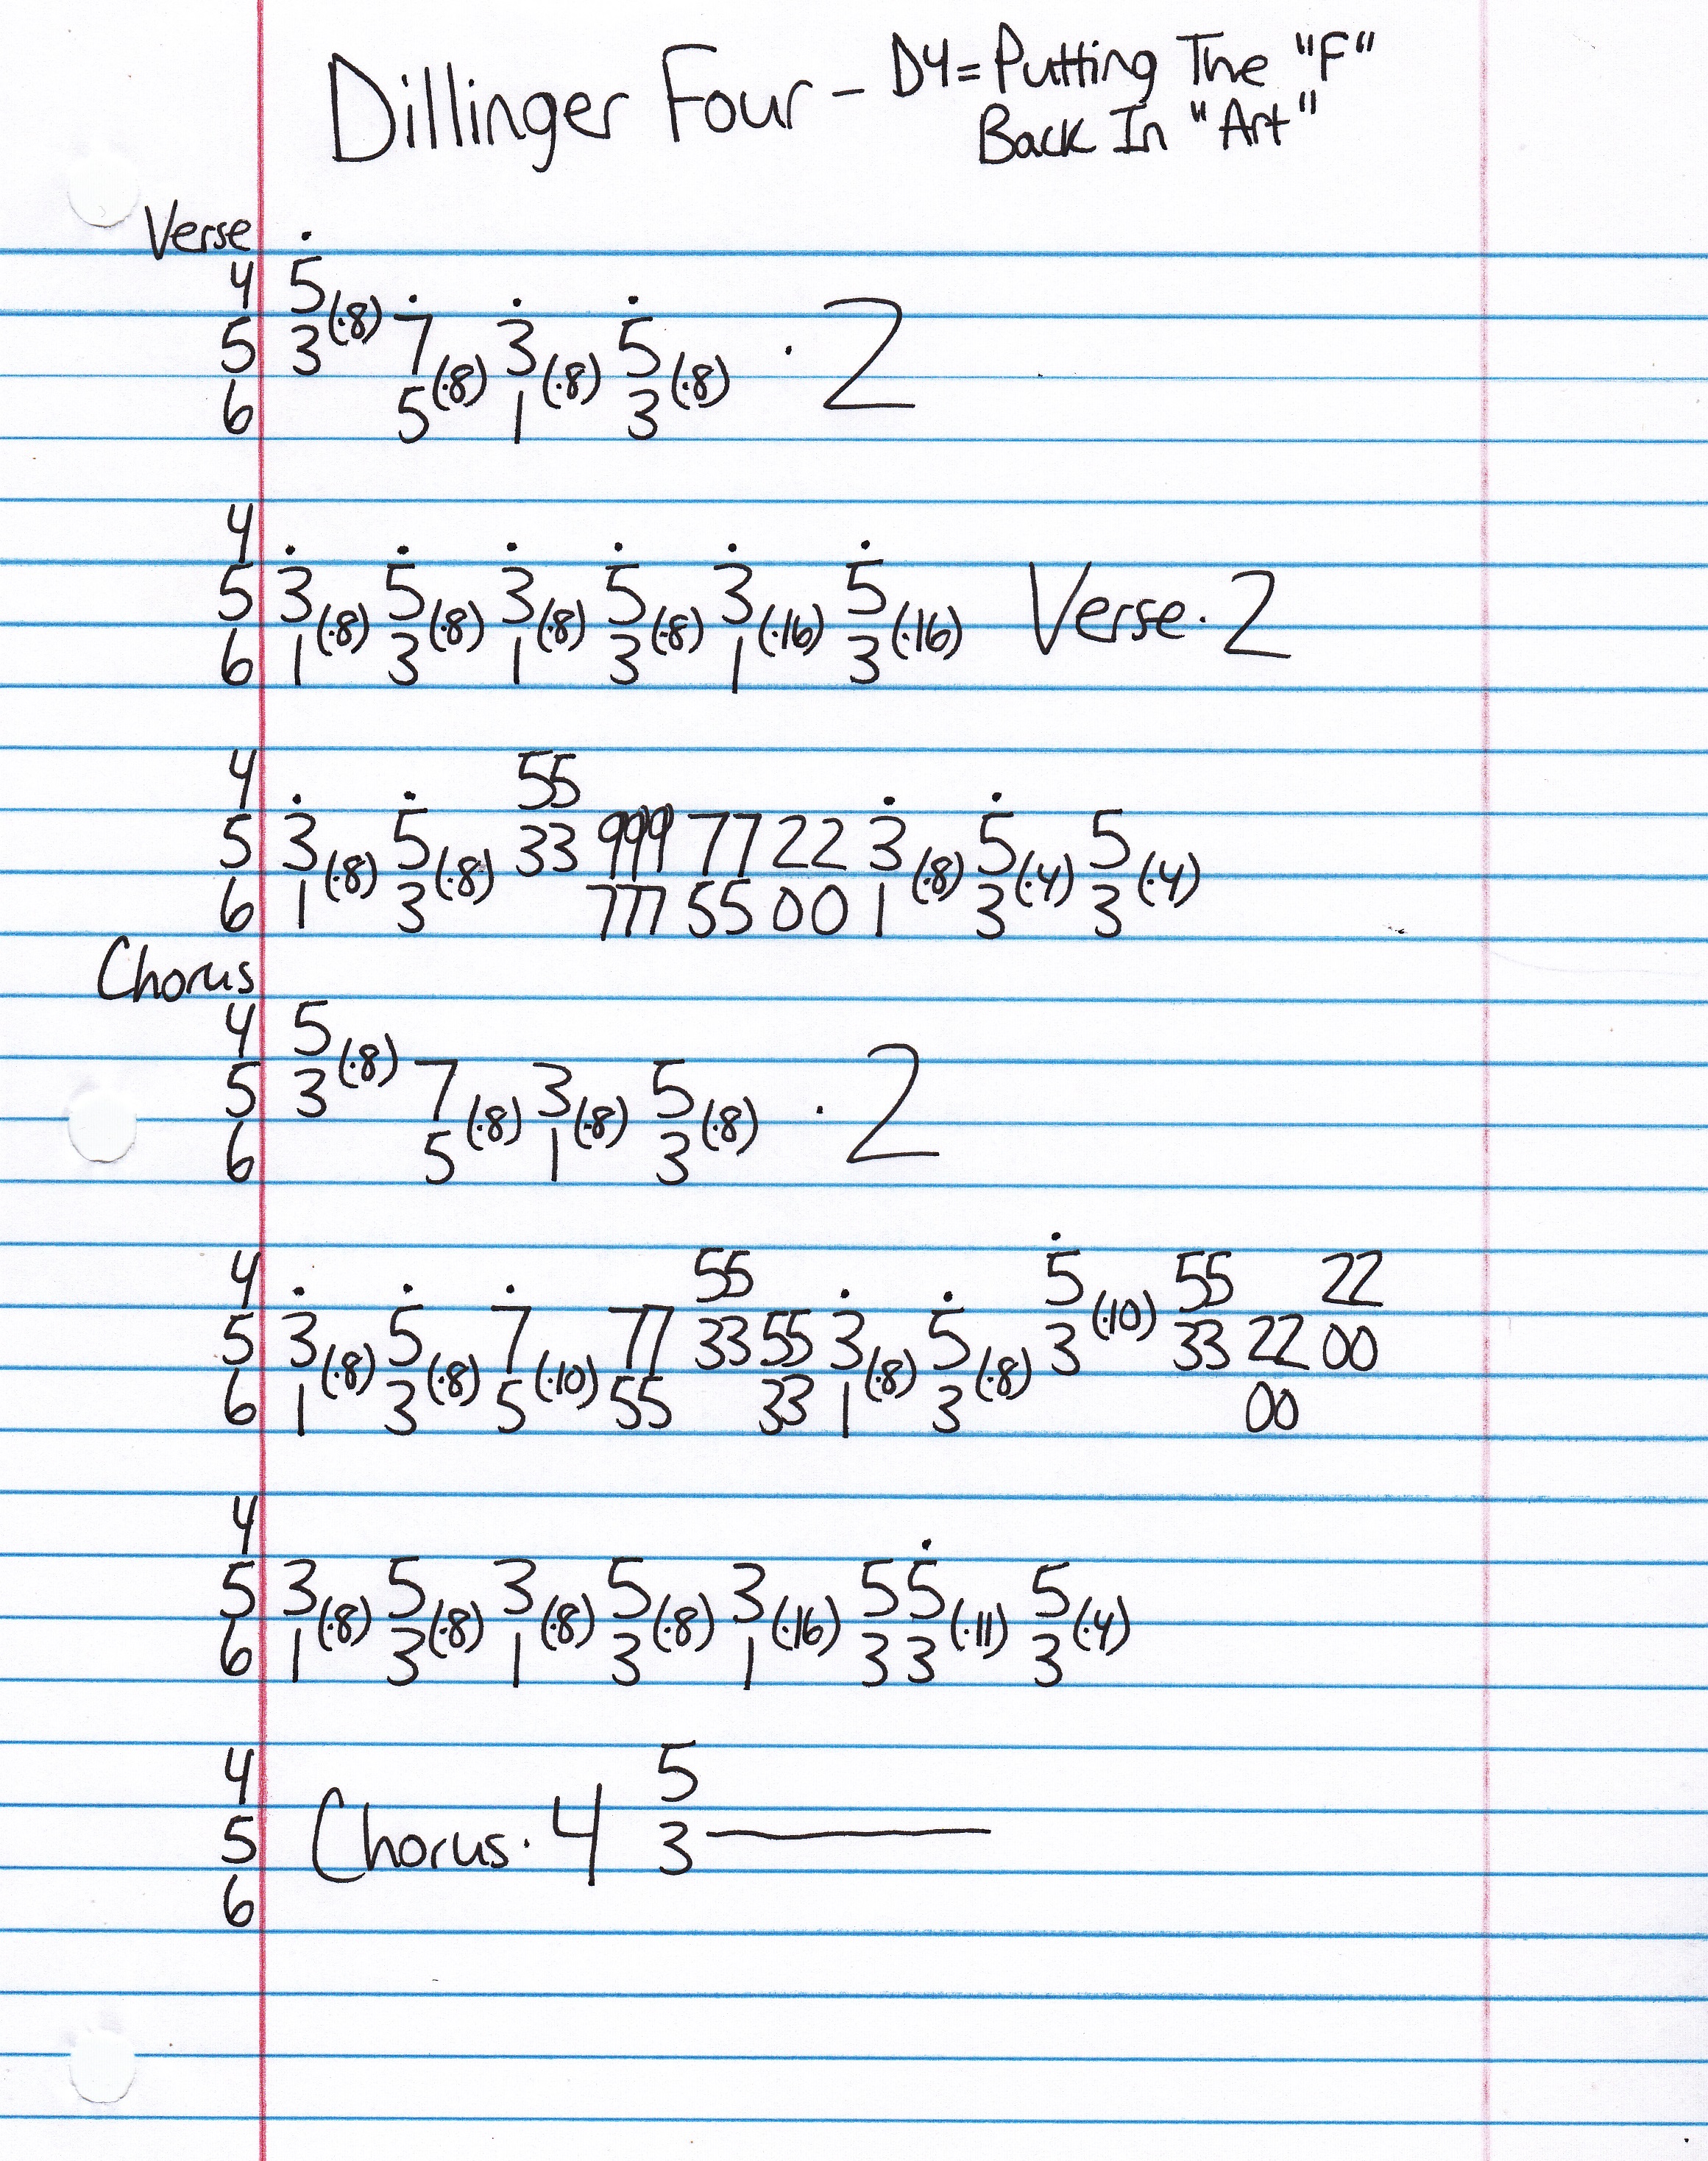 Dillinger Four - D4 = Putting The "F"
Back In "Art"
Verse
4 5
5 3 (·8) 7 3 5 · 2
6 5 (·8) 1 (·8) 3 (·8)
4
5 3 5 3 5 3 5 Verse · 2
6 1 (·8) 3 (·8) 1 (·8) 3 (·8) 1 (·16) 3 (·16)
4 55
5 3 5 33 999 77 22 3 5 5
6 1 (·8) 3 (·8) 777 55 00 1 (·8) 3 (·4) 3 (·4)
Chorus
4 5
5 3 (·8) 7 3 5 · 2
6 5 (·8) 1 (·8) 3 (·8)
4 55 5 55 22
5 3 5 7 77 33 55 3 5 3 (·10) 33 22 00
6 1 (·8) 3 (·8) 5 (·10) 55 33 1 (·8) 3 (·8) 00
4
5 3 5 3 5 3 5 5 5
6 1 (·8) 3 (·8) 1 (·8) 3 (·8) 1 (·16) 3 3 (·11) 3 (·4)
4 5
5 Chorus · 4 3
6